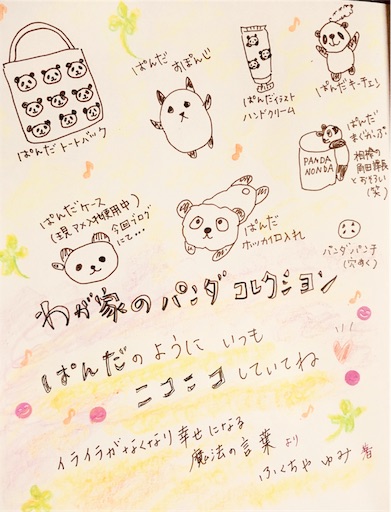 ぱんだトートバック
ぱんだ
すぽんじ
ぱんだイラスト
ハンドクリーム
ぱんだキーチェン
ぱんだ
まぐかっぷ
相棒の
角田課長
とおそろい
(笑)
PANDA
NONDA
ぱんだケース
(現マメ入れ使用中)
今回ブログ
にて…
ぱんだ
ホッカイロ入れ
パンダパンチ
(穴あく)
わが家のパンダコレクション
ぱんだのように いつも
ニコニコしていてね
イライラがなくなり幸せになる
魔法の言葉 より
ふくちゃ ゆみ 著